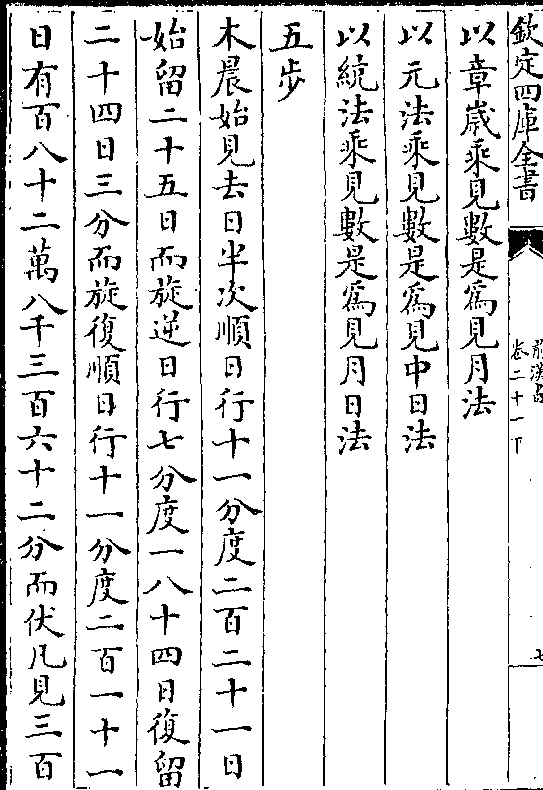 欽定四庫全書
前漢書
卷二十一下
七
以章歲乘見數是爲見月法
以元法乘見數是爲見中日法
以統法乘見數是爲見月日法
五步
木晨始見去日半次順日行十一分度二百二十一日
始留二十五日而旋逆日行七分度一八十四日復留
二十四日三分而旋復順日行十一分度二百一十一
日有百八十二萬八千三百六十二分而伏凡見三百